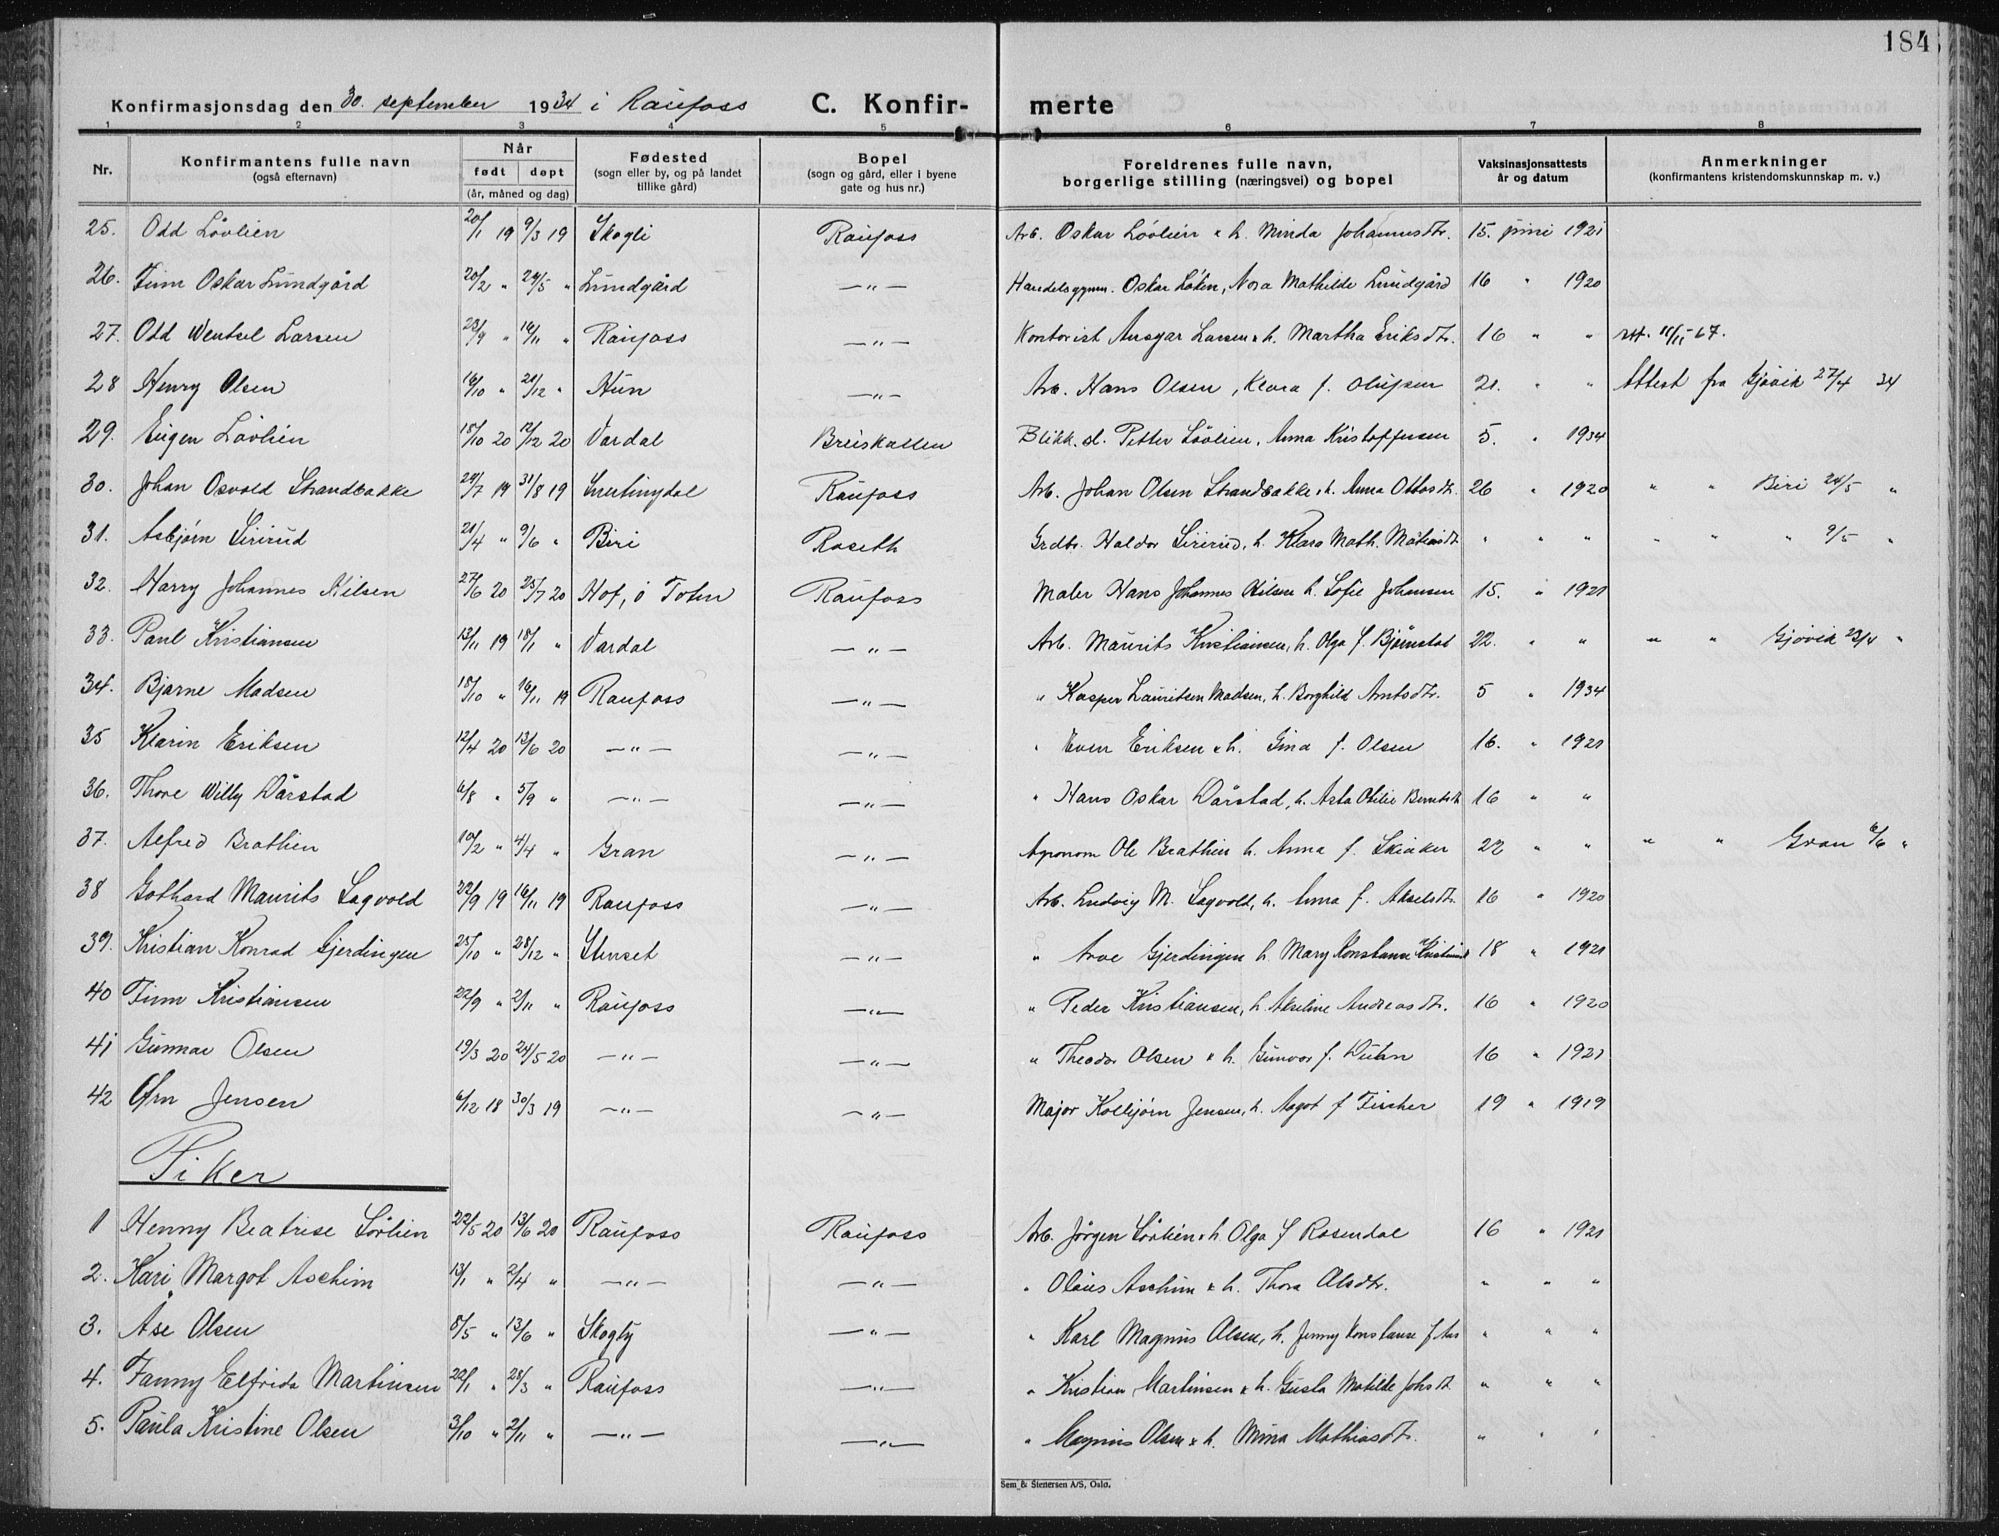 184
Konfirmasjonsdag den 30. september 1934 i Raufoss C. Konfir- merte
1 2 3 4 5 6 7 8
Nr. Konfirmantens fulle navn (også efternavn) Når født døpt (år, måned og dag) Fødested (sogn eller by, og på landet tillike gård) Bopel (sogn og gård, eller i byene gate og hus nr.) Foreldrenes fulle navn, borgerlige stilling (næringsvei) og bopel Vaksinasjonsattests år og datum Anmerkninger (konfirmantens kristendomskunnskap m. v.)
25. Odd Lövlien 20/1 19 9/3 19 Skogli Raufoss Arb. Oskar Lövlien & h. Minda Johannesdtr. 15. juni 1921
26. Finn Oskar Lundgård 20/2 " 24/5 " Lundgård —"— Handelsgymn. Oskar Löken, Nora Mathilde Lundgård 16 " 1920
27. Odd Wentsel Larsen 23/9 " 16/11 " Raufoss —"— Kontorist Ansgar Larsen & h. Martha Eriksdtr. 16 " " 11/11-67.
28 Henry Olsen 16/10 " 21/12 " Hun —"— Arb. Hans Olsen, Klara f. Olufsen 21. " " Attest fra Gjøvik 27/4 34
29. Eugen Lövlien 18/10 20 12/12 20 Vardal Breiskallen Blikk.sl. Petter Lövlien, Anna Kristoffersen 5. " 1934
30. Johan Osvald Strandbakke 29/7 19 31/8 19 Snertingdal Raufoss Arb. Johan Olsen Strandbakke & h. Anna Ottosdtr. 26 " 1920 " " Biri 24/5 "
31. Asbjørn Sirirud 21/4 " 9/6 " Biri Roseth Grdbr. Haldor Sirirud, h. Klara Math. Matiasdtr " " " " " " 9/5 "
32. Harry Johannes Nilsen 27/6 20 25/7 20 Hof, ö Toten Raufoss Maler Hans Johannes Nilsen h. Sofie Johansen 15. " 1921
33. Paul Kristiansen 13/11 19 18/1 " Vardal —"— Arb. Maurits Kristiansen, h. Olga f. Bjørnstad 22. " " " " Gjøvik 23/4 "
34. Bjarne Madsen 18/10 " 16/11 19 Raufoss —"— " Kasper Lauritsen Madsen, h. Borghild Arntsdtr. 5 " 1934
35 Klarin Eriksen 12/4 20 13/6 20 —"— —"— " Even Eriksen & h. Gina f. Olsen 16. " 1921
36. Thore Willy Dårstad 6/8 " 5/9 " —"— —"— " Hans Oskar Dårstad, h. Asta Otilie Berntsdtr 16 " "
37. Alfred Brathien 10/2 " 4/4 " Gran —"— Agronom Ole Brathien h. Anna f. Skiaker 22 " " " " Gran 6/6 "
38 Gothard Maurits Sagvold 22/9 19 16/11 19 Raufoss —"— Arb. Ludvig M. Sagvold, h. Anna f. Akselsdtr. 16 " 1920
39. Kristian Konrad Gjerdingen 25/10 " 28/12 " Stenset —"— " Arve Gjerdingen h. Mary Konstanse Kristiansd 18 " 1921
40 Finn Kristiansen 22/9 " 2/11 " Raufoss —"— " Peder Kristiansen, h. Akseline Andreasdtr. 16 " 1920
41 Gunnar Olsen 19/3 20 24/5 20 —"— —"— " Theodor Olsen & h. Gunvor f. Duhn 16 " 1921
42 Ørn Jensen 6/12 18 30/3 19 —"— —"— Major Kolbjørn Jensen, h. Aagot f Fischer 19 " 1919
Piker
1 Henny Beatrise Lövlien 22/5 20 13/6 20 Raufoss Raufoss Arb. Jörgen Lövlien & h. Olga f Rosendal 16 " 1921
2. Kari Margot Aschim 13/1 " 2/4 " —"— —"— " Olaus Aschim & h. Thora Alsdtr. " " "
3. Åse Olsen 8/5 " 13/6 " Skogly —"— " Karl Magnus Olsen, h. Jenny Konstanse f. " " "
4. Fanny Elfrida Martinsen 22/1 " 28/3 " Raufoss —"— " Kristian Martinsen & h. Gusta Matilde Johsdt. " " "
5. Paula Kristine Olsen 3/10 " 2/11 " —"— —"— " Magnus Olsen & h. Mina Mathiasdtr. " " "
Sem & Stenersen A/S, Oslo.